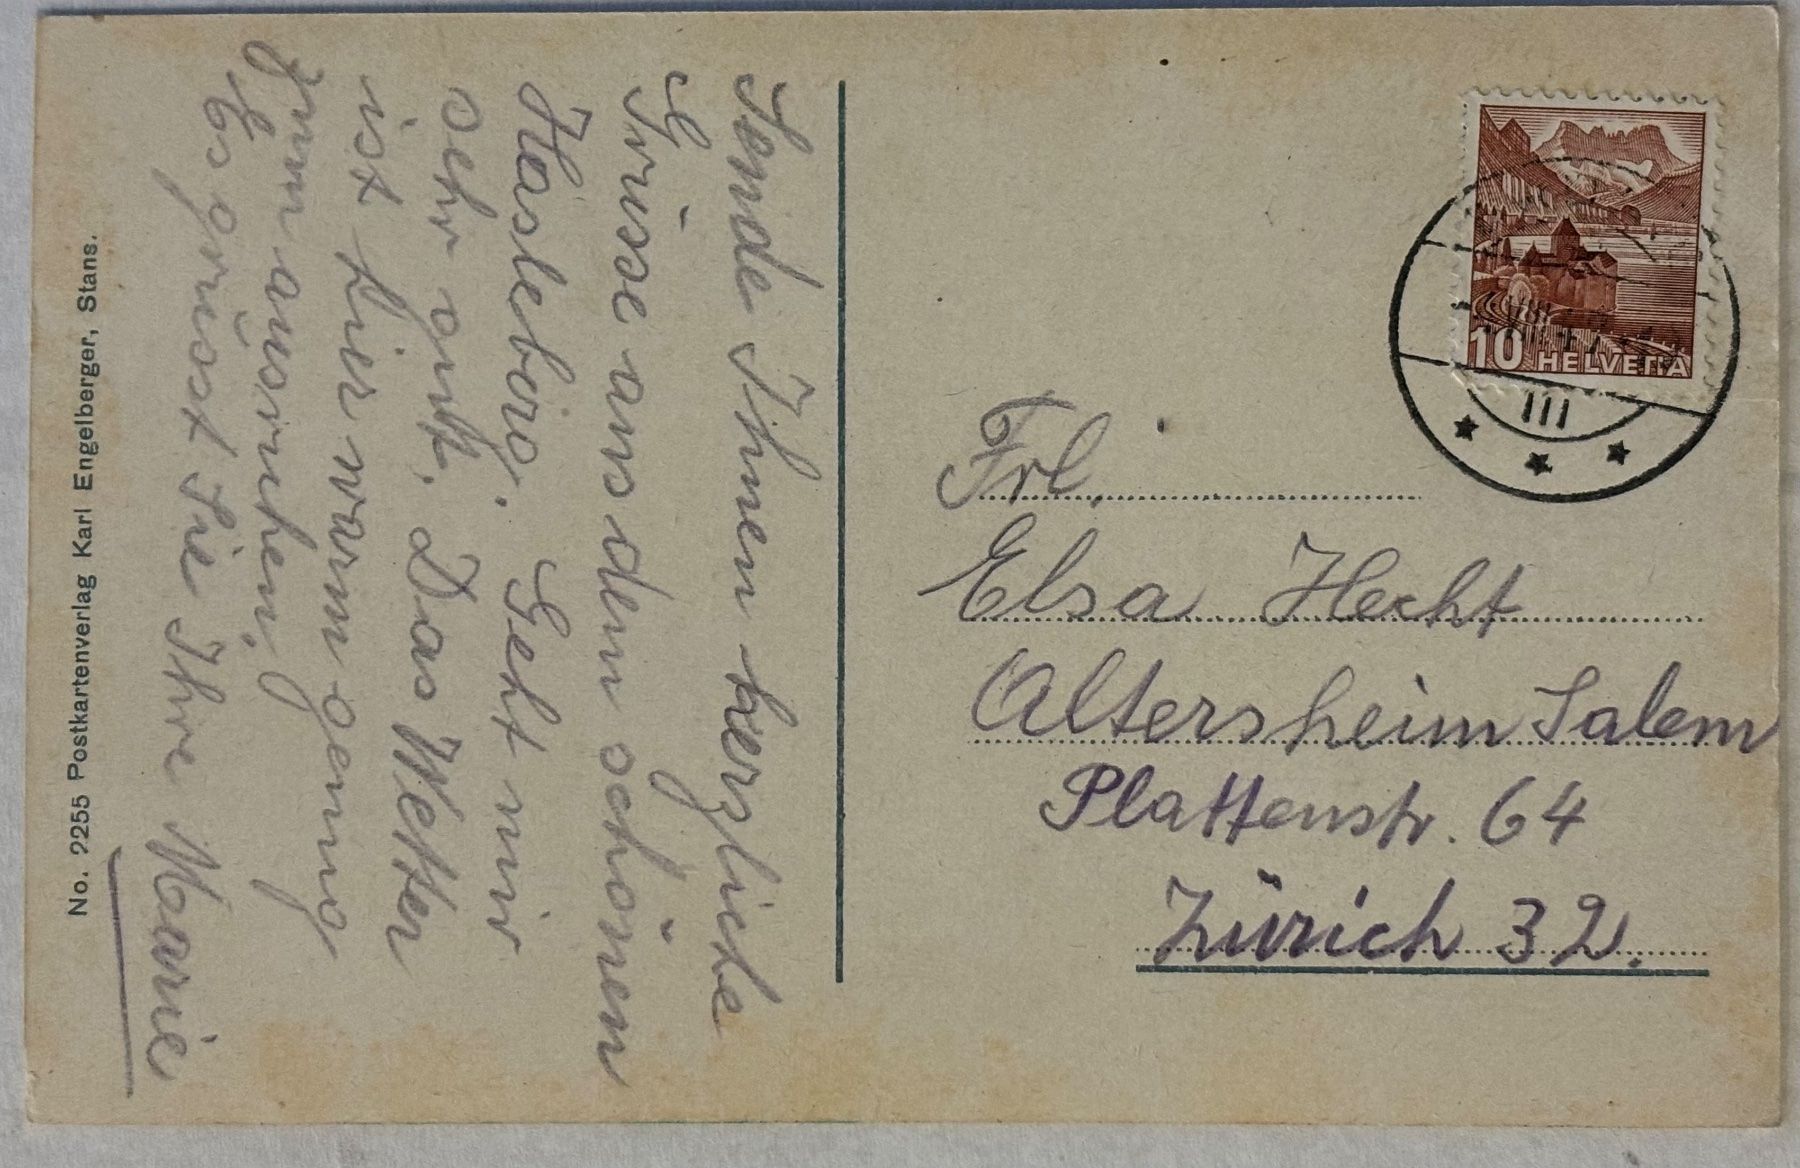 Sende Ihnen herzliche
Grüsse aus dem schönem
Hasleberg. Geht mir
sehr gut. Das Wetter
ist hier warm genug
zum ausruhen,
Es grüsst Sie Ihre Marie
No. 2255 Postkartenverlag Karl Engelberger, Stans.
10 HELVETIA
III
Frl.
Elsa Hecht
Altersheim Salem
Plattenstr. 64
Zürich 32.